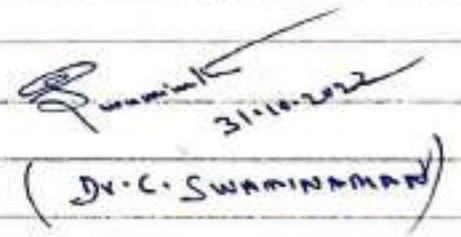 31.10.2022
(Dr. C. SWAMINATHAN)